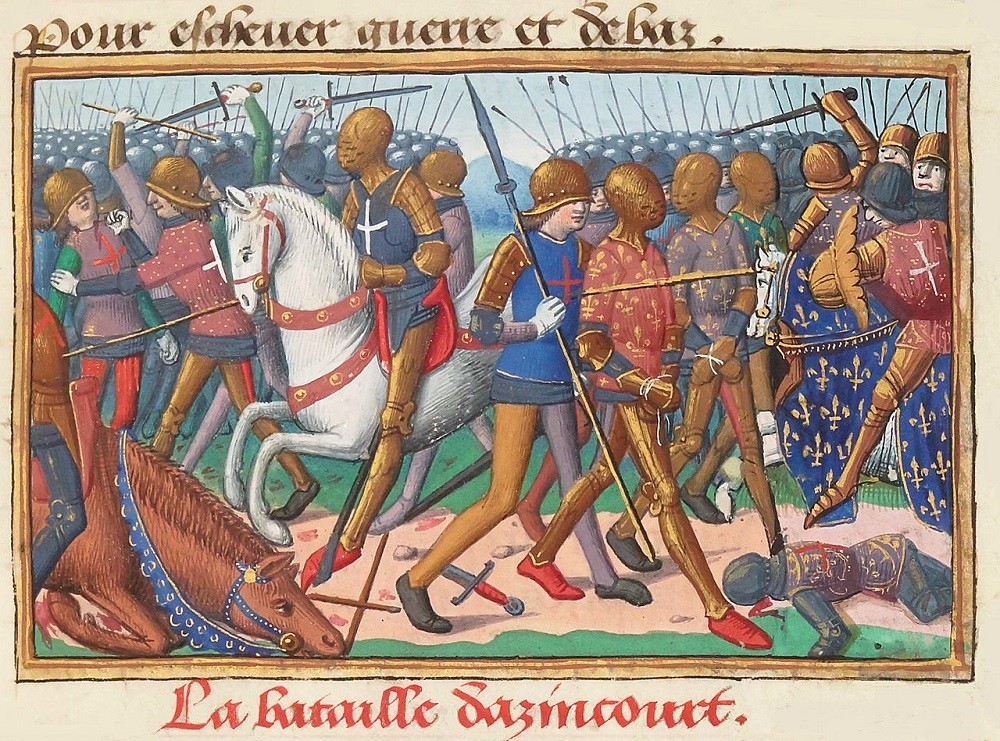 Pour escheuer guerre et debaz.
La bataille dazincourt.